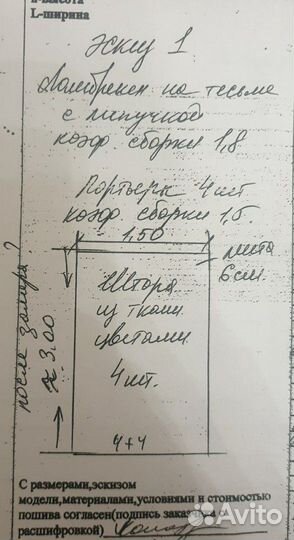 L-ширина
Эскиз 1
Ламбрекен на тесьме
с липучкой
коэф. сборки 1,8
Портьеры 4 шт
коэф. сборки 1,5.
1,50
лента
6 см.
Штора
из ткани
цветами
4 шт.
4+4
после замера ?
≈ 3.00
С размерами,эскизом
модели,материалами,условиями и стоимостью
пошива согласен(подпись заказ
расшифровкой)
Avito